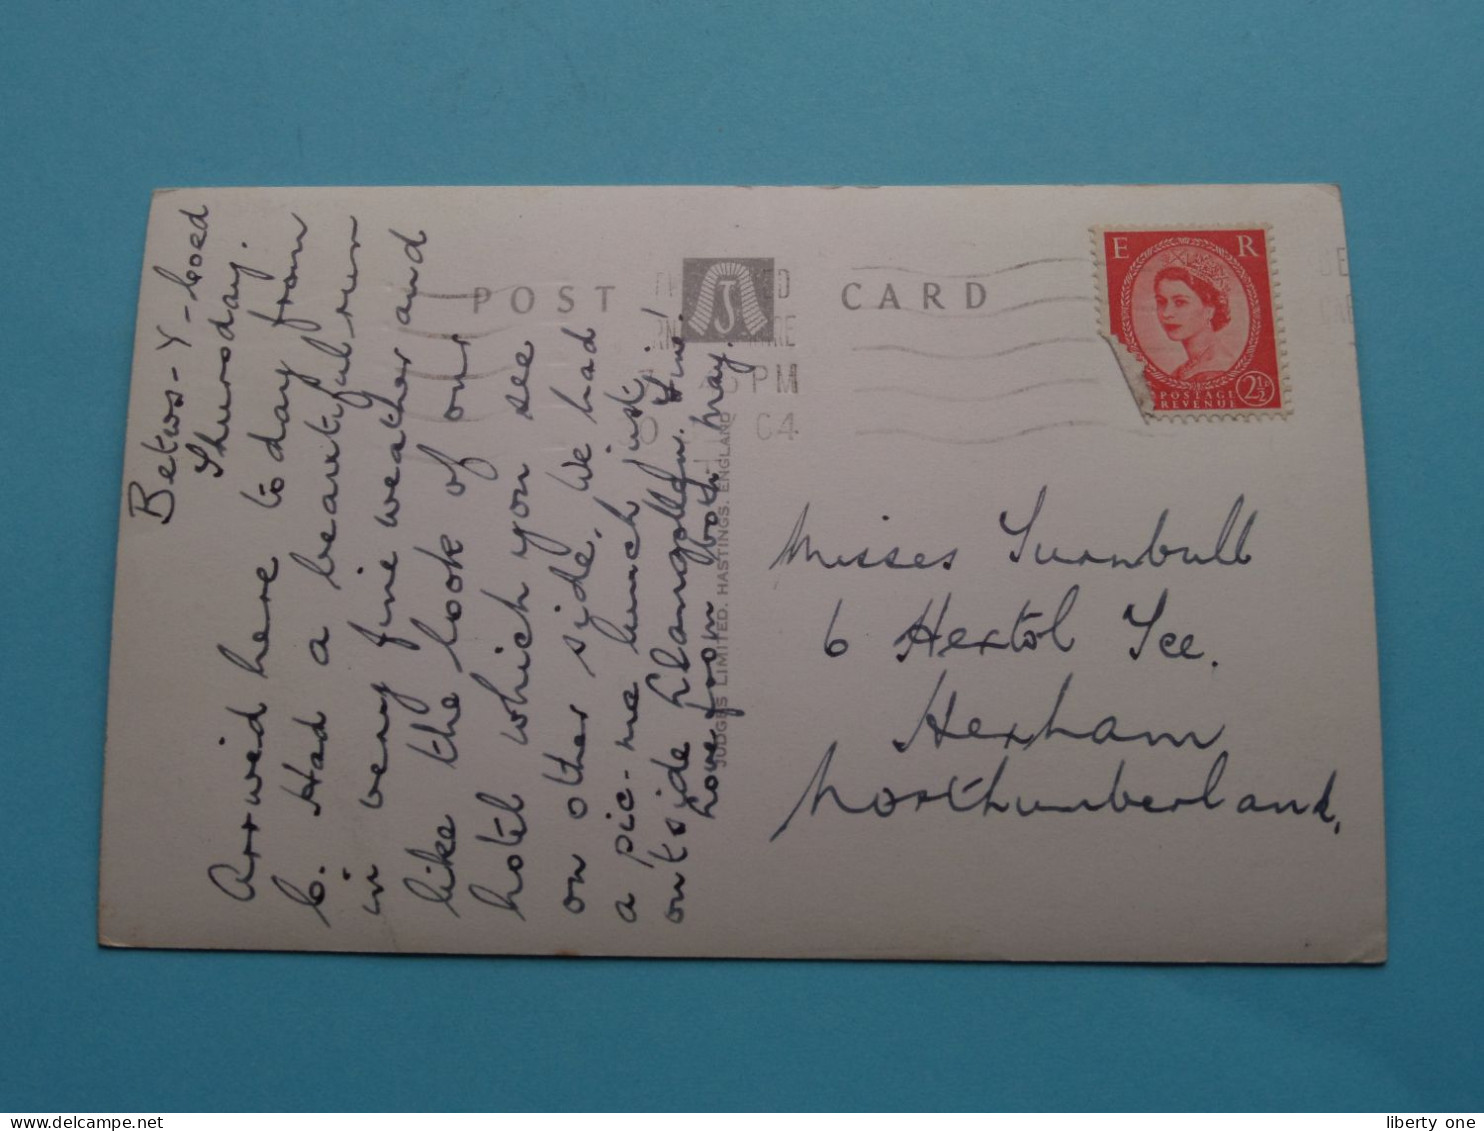 POST CARD
E R
POSTAGE
REVENUE 2½
PM
JUDGES LIMITED. HASTINGS. ENGLAND
Betws-Y-Coed
Thursday.
Arrived here to day from
C. Had a beautiful run
in very fine weather and
like the look of our
hotel which you see
on other side. We had
a pic-nic lunch just
outside Llangollen. Fine!
Love from both May.
Misses Turnbull
6 Hextol Tce.
Hexham
Northumberland.
liberty one